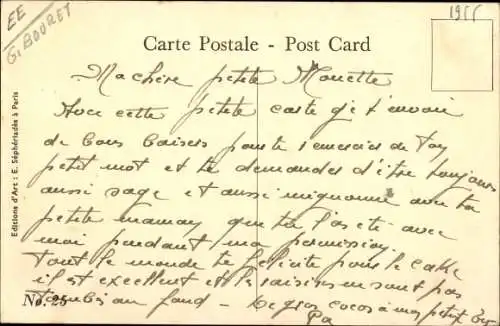 EE
G. BOURET
1955
Carte Postale - Post Card
Editions d'Art : E. Séphériadès à Paris
Ma chère petite Mouette
Avec cette petite carte je t'envoie
de bons baisers pour te remercier de ton
petit mot et te demander d'être toujours
aussi sage et aussi mignonne avec ta
petite maman que tu l'as été avec
moi pendant ma permission.
Tout le monde te félicite pour le cake
il est excellent et les raisins ne sont pas
tombés au fond - De gros
No. 25